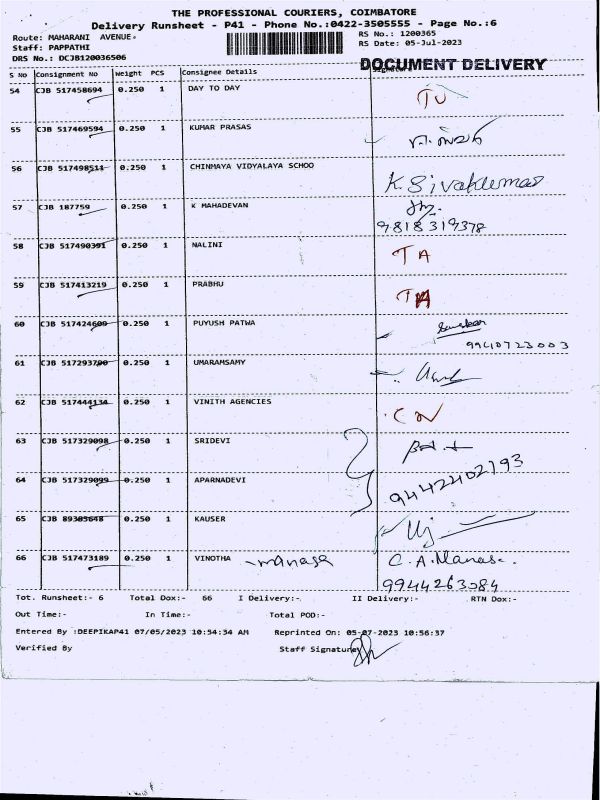 THE PROFESSIONAL COURIERS, COIMBATORE
Delivery Runsheet - P41 - Phone No.:0422-3505555 - Page No.:6
Route: MAHARANI AVENUE. RS No.: 1200365
Staff: PAPPATHI RS Date: 05-Jul-2023
DRS No.: DCJB120036506
DOCUMENT DELIVERY
S No Consignment No Weight PCS Consignee Details
54 CJB 517458694 0.250 1 DAY TO DAY TU
55 CJB 517469594 0.250 1 KUMAR PRASAS
56 CJB 517498511 0.250 1 CHINMAYA VIDYALAYA SCHOO K. Sivakumar
57 CJB 187759 0.250 1 K MAHADEVAN
9818319378
58 CJB 517490391 0.250 1 NALINI TA
59 CJB 517413219 0.250 1 PRABHU TA
60 CJB 517424609 0.250 1 PUYUSH PATWA
9940723003
61 CJB 517293790 0.250 1 UMARAMSAMY
62 CJB 517444134 0.250 1 VINITH AGENCIES CN
63 CJB 517329098 0.250 1 SRIDEVI
64 CJB 517329099 0.250 1 APARNADEVI 9442402793
65 CJB 89305648 0.250 1 KAUSER
66 CJB 517473189 0.250 1 VINOTHA -manasa C.A.Manasa.
9944263984
Tot. Runsheet:- 6 Total Dox:- 66 I Delivery:- II Delivery:- RTN Dox:-
Out Time:- In Time:- Total POD:-
Entered By :DEEPIKAP41 07/05/2023 10:54:34 AM Reprinted On: 05-07-2023 10:56:37
Verified By Staff Signature